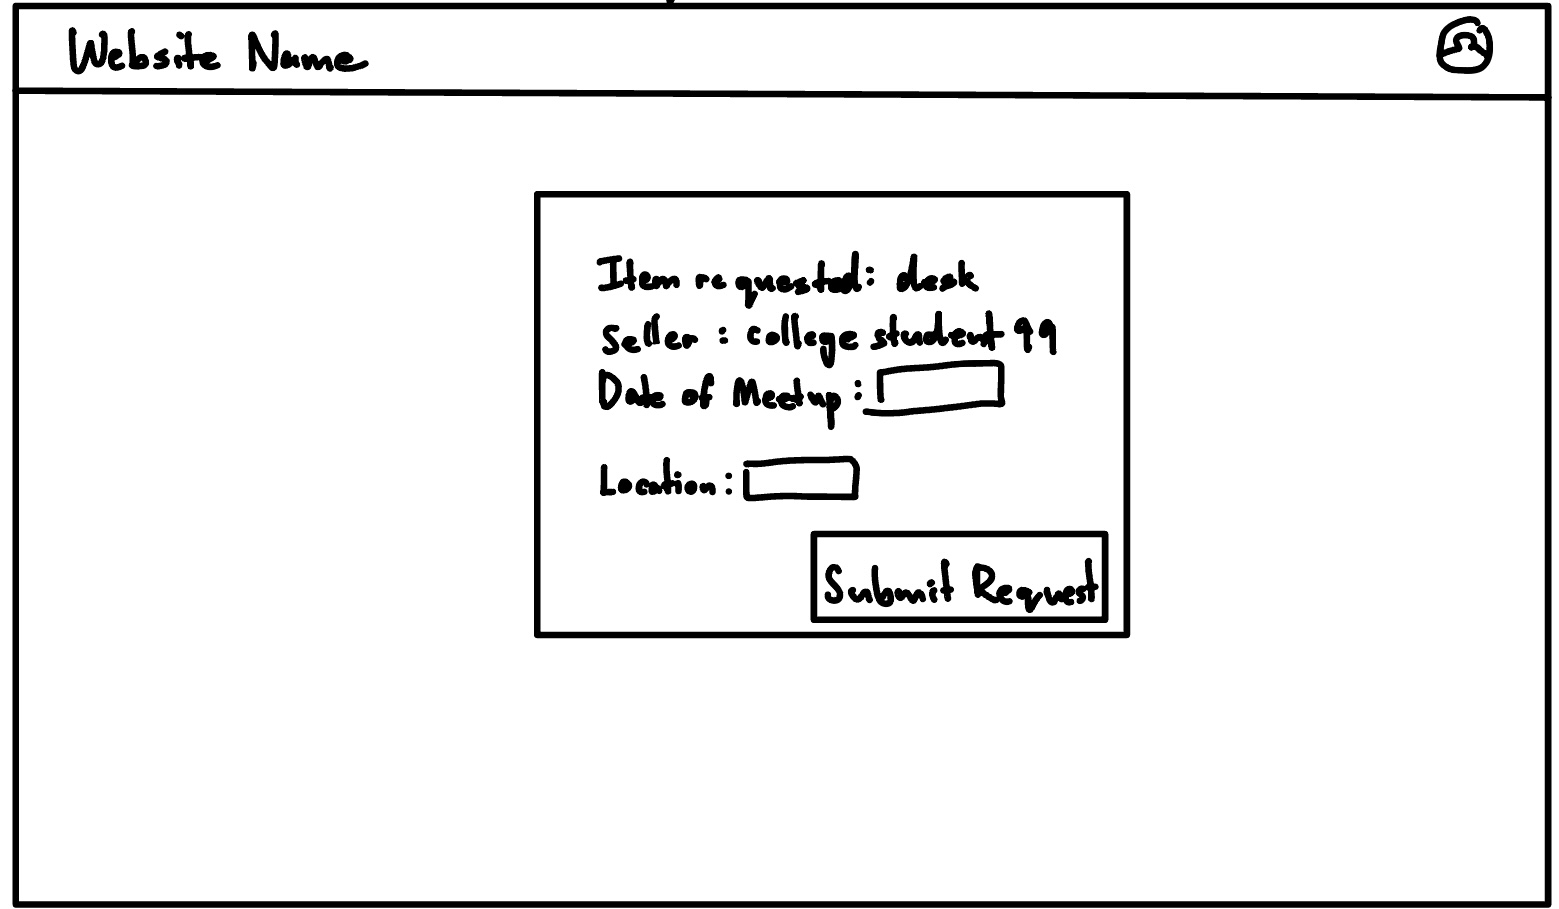 Website Name
Item requested: desk
Seller: college student 99
Date of Meetup:
Location:
Submit Request